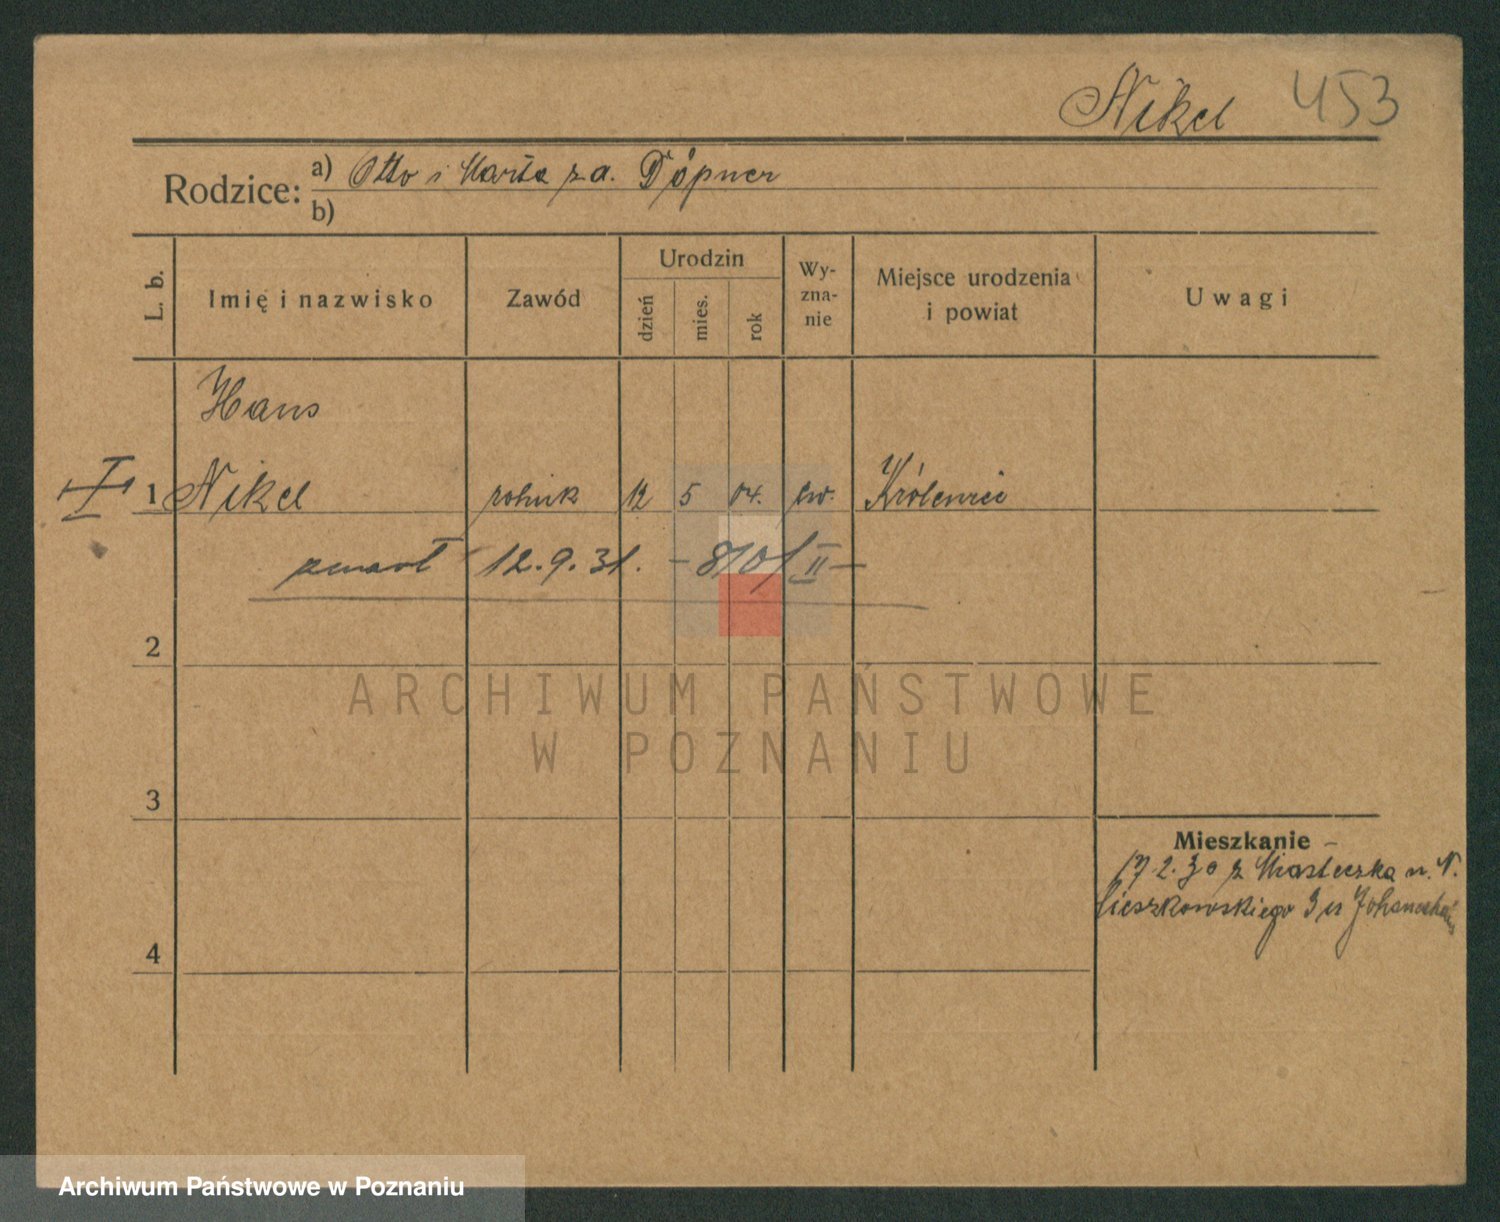 Nikel 453
Rodzice: a) Otto i Marta z d. Döpner
b)
L. b. Imię i nazwisko Zawód Urodzin dzień mies. rok Wy-zna-nie Miejsce urodzenia i powiat Uwagi
Hans
1 Nikel rolnik 12 5 04. ew. Królewiec
zmarł 12.9.31. - 810/II -
2
ARCHIWUM PAŃSTWOWE
W POZNANIU
3
Mieszkanie
17.2.30 z Miasteczka n. N.
Cieszkowskiego 3 u
4
Archiwum Państwowe w Poznaniu